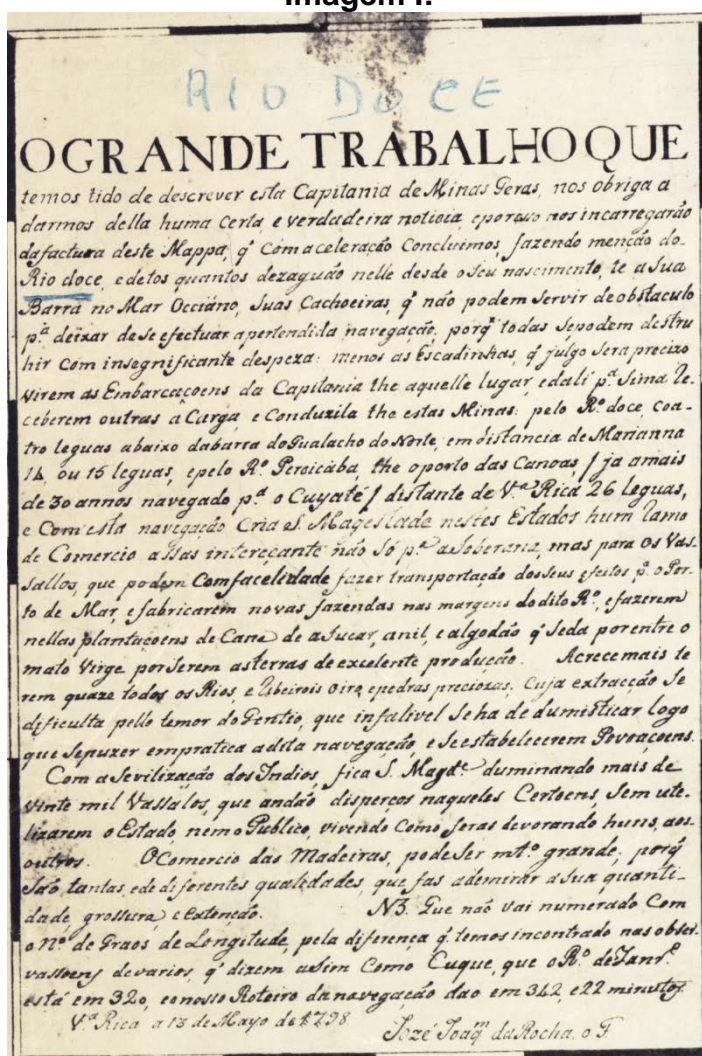 Imagem I.
RIO DOCE
O GRANDE TRABALHO QUE
temos tido de descrever esta Capitania de Minas Geras, nos obriga a
darmos della huma Certa, e verdadeira noticia, eporisso nos incarregarão
dafactura deste Mappa, q̃ Com aceleração Concluimos, fazendo menção do
Rio doce, edetos quantos dezaguão nelle desde oSeu nascimento, te aSua
Barra no Mar Occiáno, Suas Cachoeiras, q̃ não podem Servir de obstaculo
p.ª deixar deSe efectuar apertendida navegação, porq̃ todas Sepodem destru
hir Com insegnificante despeza: menos as Escadinhas, q̃ julgo Sera precizo
virem as Embarcaçoens da Capitania the aquelle lugar, edali p.ª Sima Re-
ceberem outras a Carga, e Conduzila the estas Minas: pelo R.º doce, Coa-
tro leguas abaixo dabarra doGualacho do Norte, em distancia de Marianna
14, ou 15 leguas, epelo R.º Peroicába, the oporto das Canoas / ja amais
de 30 annos navegado p.ª o Cuyaté / distante de V.ª Rica 26 Leguas,
e Com esta navegação Cria S. Magestade nestes Estados hum Ramo
de Comercio assas intereçante não Só p.ª aSoberana, mas para os Vas-
Sallos, que podem Comfacelidade fazer transportação dosSeus efeitos p.ª o Por-
to de Mar, efabricarem novas fazendas nas margens dodito R.º, efazerem
nellas plantaçoens de Cana de aSucar, anil, ealgodão q̃ Seda porentre o
mato Virge porSerem asterras de excelente producão. Acrece mais te
rem quaze todos os Rios, e Ribeirois oiro, epedras preciozas, Cuja extracção Se
dificulta pello temor do Gentio, que infalivel Seha de dumisticar logo
que Sepuzer empratica adita navegação, eSeestabelecerem Povoaçoens.
Com aSevilização dos Indios, fica S. Magd.e duminando mais de
vinte mil Vassalos, que andão disperços naqueles Certoens, Sem ute-
lizarem o Estado, nem o Publico, vivendo Como feras devorando huns, aos
outros. O Comercio das Madeiras, podeSer mt.º grande; porq̃
São tantas, ede diferentes qualidades, que fas ademirar aSua quanti-
dade, grossura, e Extenção. NB. Que não vai numerado Com
o N.º de Graos de Longitude, pela diferença q̃ temos incontrado nas obser
vassoens devarios, q̃ dizem aSim Como Cuque, que o R.º de Janr.º
está em 320, eonosso Roteiro danavegação dao em 342, e 22 minutos.
V.ª Rica a 13 de Mayo de 1798
Jozé Joaq.m da Rocha. o F.